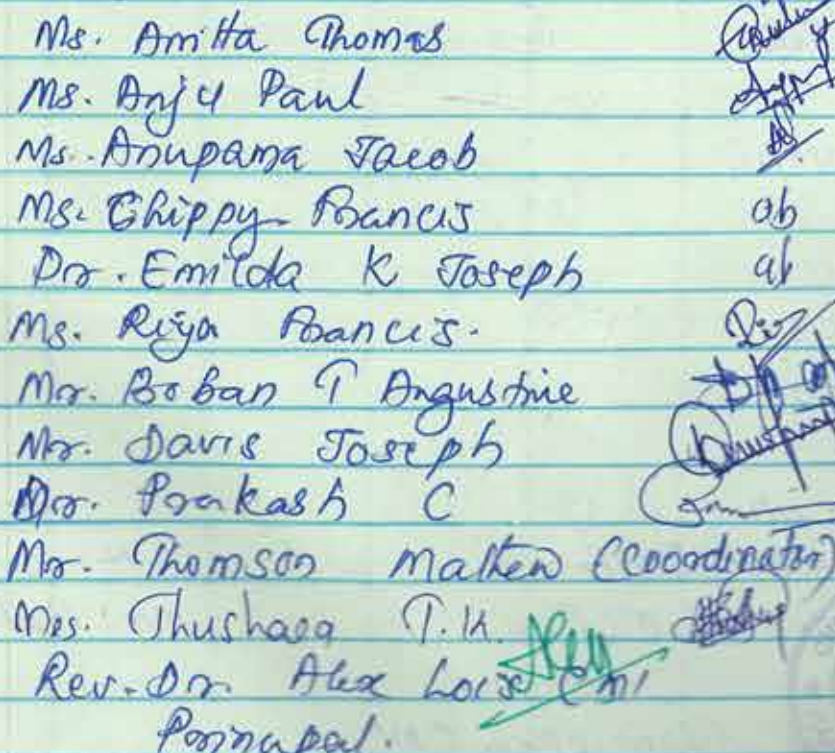 Ms. Anitta Thomas
Ms. Anju Paul
Ms. Anupama Jacob
Ms. Chippy Francis ab
Dr. Emilda K Joseph ab
Ms. Riya Francis.
Mr. Boban T Augustine
Mr. Davis Joseph
Mr. Prakash C
Mr. Thomson Mathew (Coordinator)
Mrs. Thushara T.K.
Rev. Dr. Alex CMI
Principal.